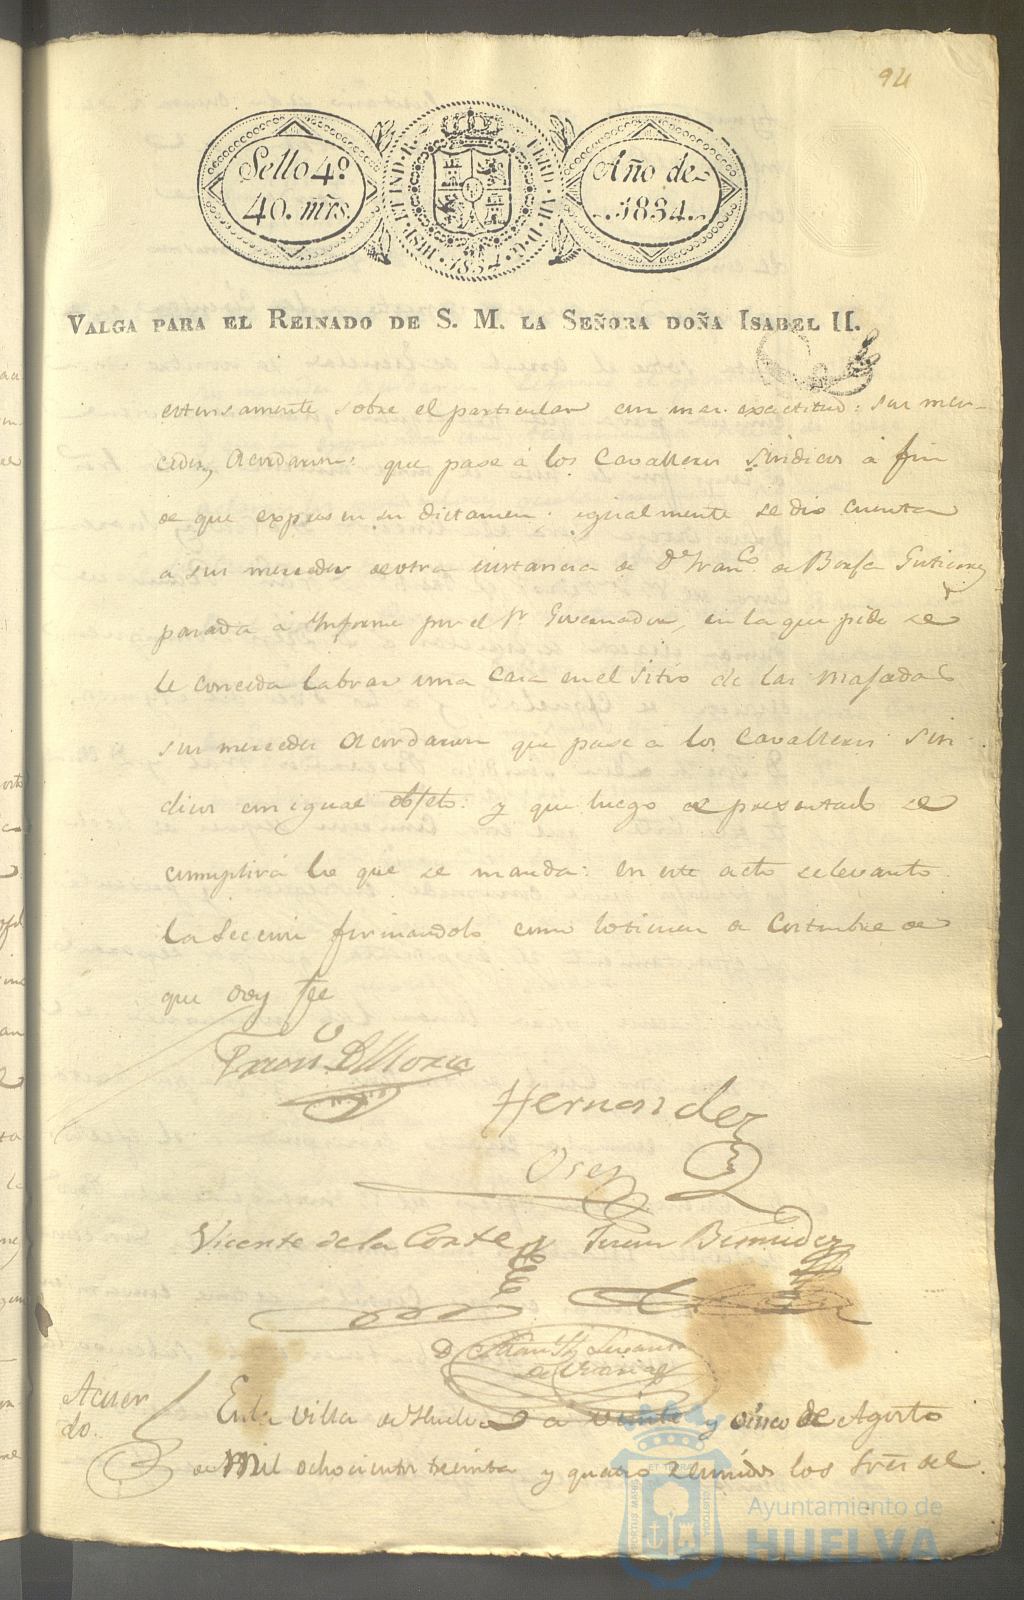 94
Sello 4º
40. mrs.
HISP. ET IND. R. FERD. VII. D. G. 1834.
Año de
1834.
VALGA PARA EL REINADO DE S. M. LA SEÑORA DOÑA ISABEL II.
estensamente sobre el particular con mar. exactitud: sus mer-
cedes, Acordaron: que pase á los Cavalleros Sindicos á fin
de que expresen su dictamen; igualmente se dio cuenta
á sus mercedes de otra instancia de Dn. Franco. de Borja Gutierrez
pasada á Informe por el Sr. Governador, en la que pide se
le conceda labrar una Casa en el sitio de las Majadas
sus mercedes Acordaron que pase á los Cavalleros Sin
dicos con igual objeto: y que luego de presentado se
cumplirá lo que se manda: en este acto se levantó
la Seccion firmandolo como lo tienen de Costumbre de
que doy fee
Hernandez
Vicente de la Corte
Bermudez
Acuer
do.
En la Villa de Huelva a veinte y cinco de Agosto
de Mil ochocientos treinta y quatro reunidos los Sres. del
PORTUS MARIS ET TERRAE CUSTODIA
Ayuntamiento de
HUELVA